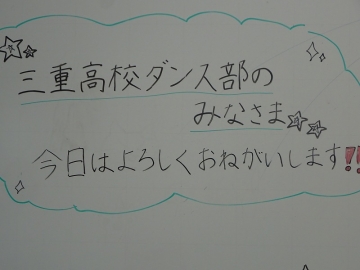 三重高校ダンス部の
みなさま
今日はよろしくおねがいします!!